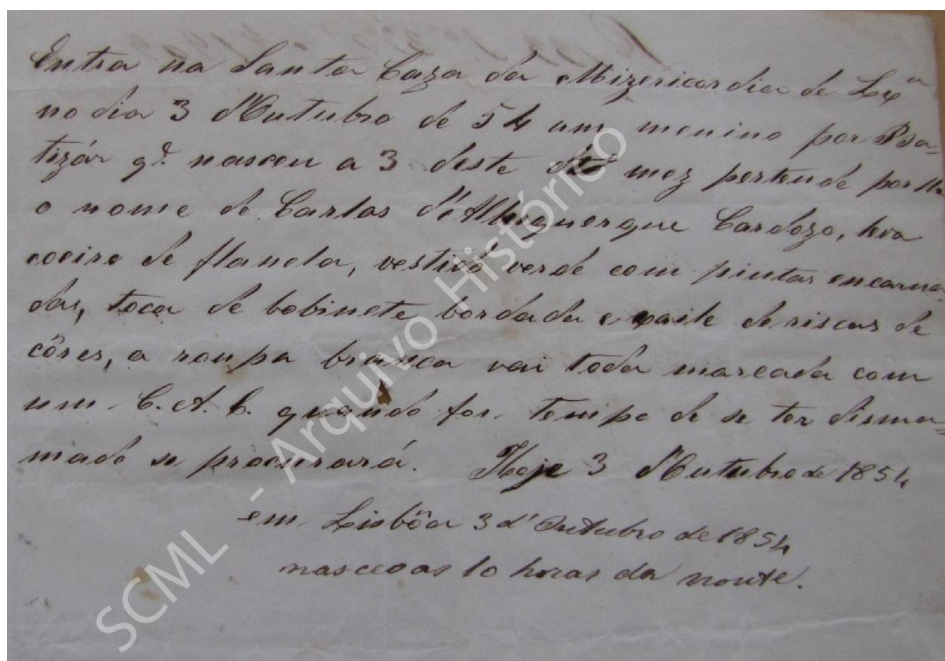 Entra na Santa Caza da Mizericordia de Lxª
no dia 3 d'Outubro de 54 um menino por Bba-
tizár q.e nasceu a 3 deste mez pertende porlhe
o nome de Carlos d'Albuquerque Cardozo, leva
coeiro de flanela, vestido verde com pintas encarna-
das, toca de bobinete bordada e xaile de riscas de
côres, a roupa branca vai toda marcada com
um C. A. C. quando for tempo de se ter disma-
mado se procurará. Hoje 3 d'Outubro de 1854
em Lisbôa 3 d'Outubro de 1854
nasceo as 10 horas da noute.
SCML - Arquivo Histórico